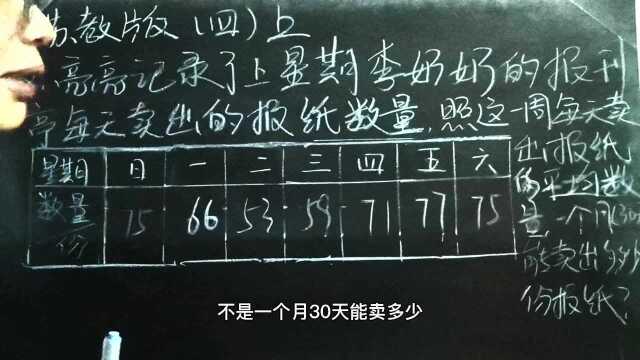 苏教版(四)上
亮亮记录了上星期李奶奶的报刊
亭每天卖出的报纸数量.照这一周每天卖
出报纸
的平均数
量,一个月(30
能卖出多少
份报纸?
星期 日 一 二 三 四 五 六
数量/份 75 66 53 59 71 77 75
不是一个月30天能卖多少